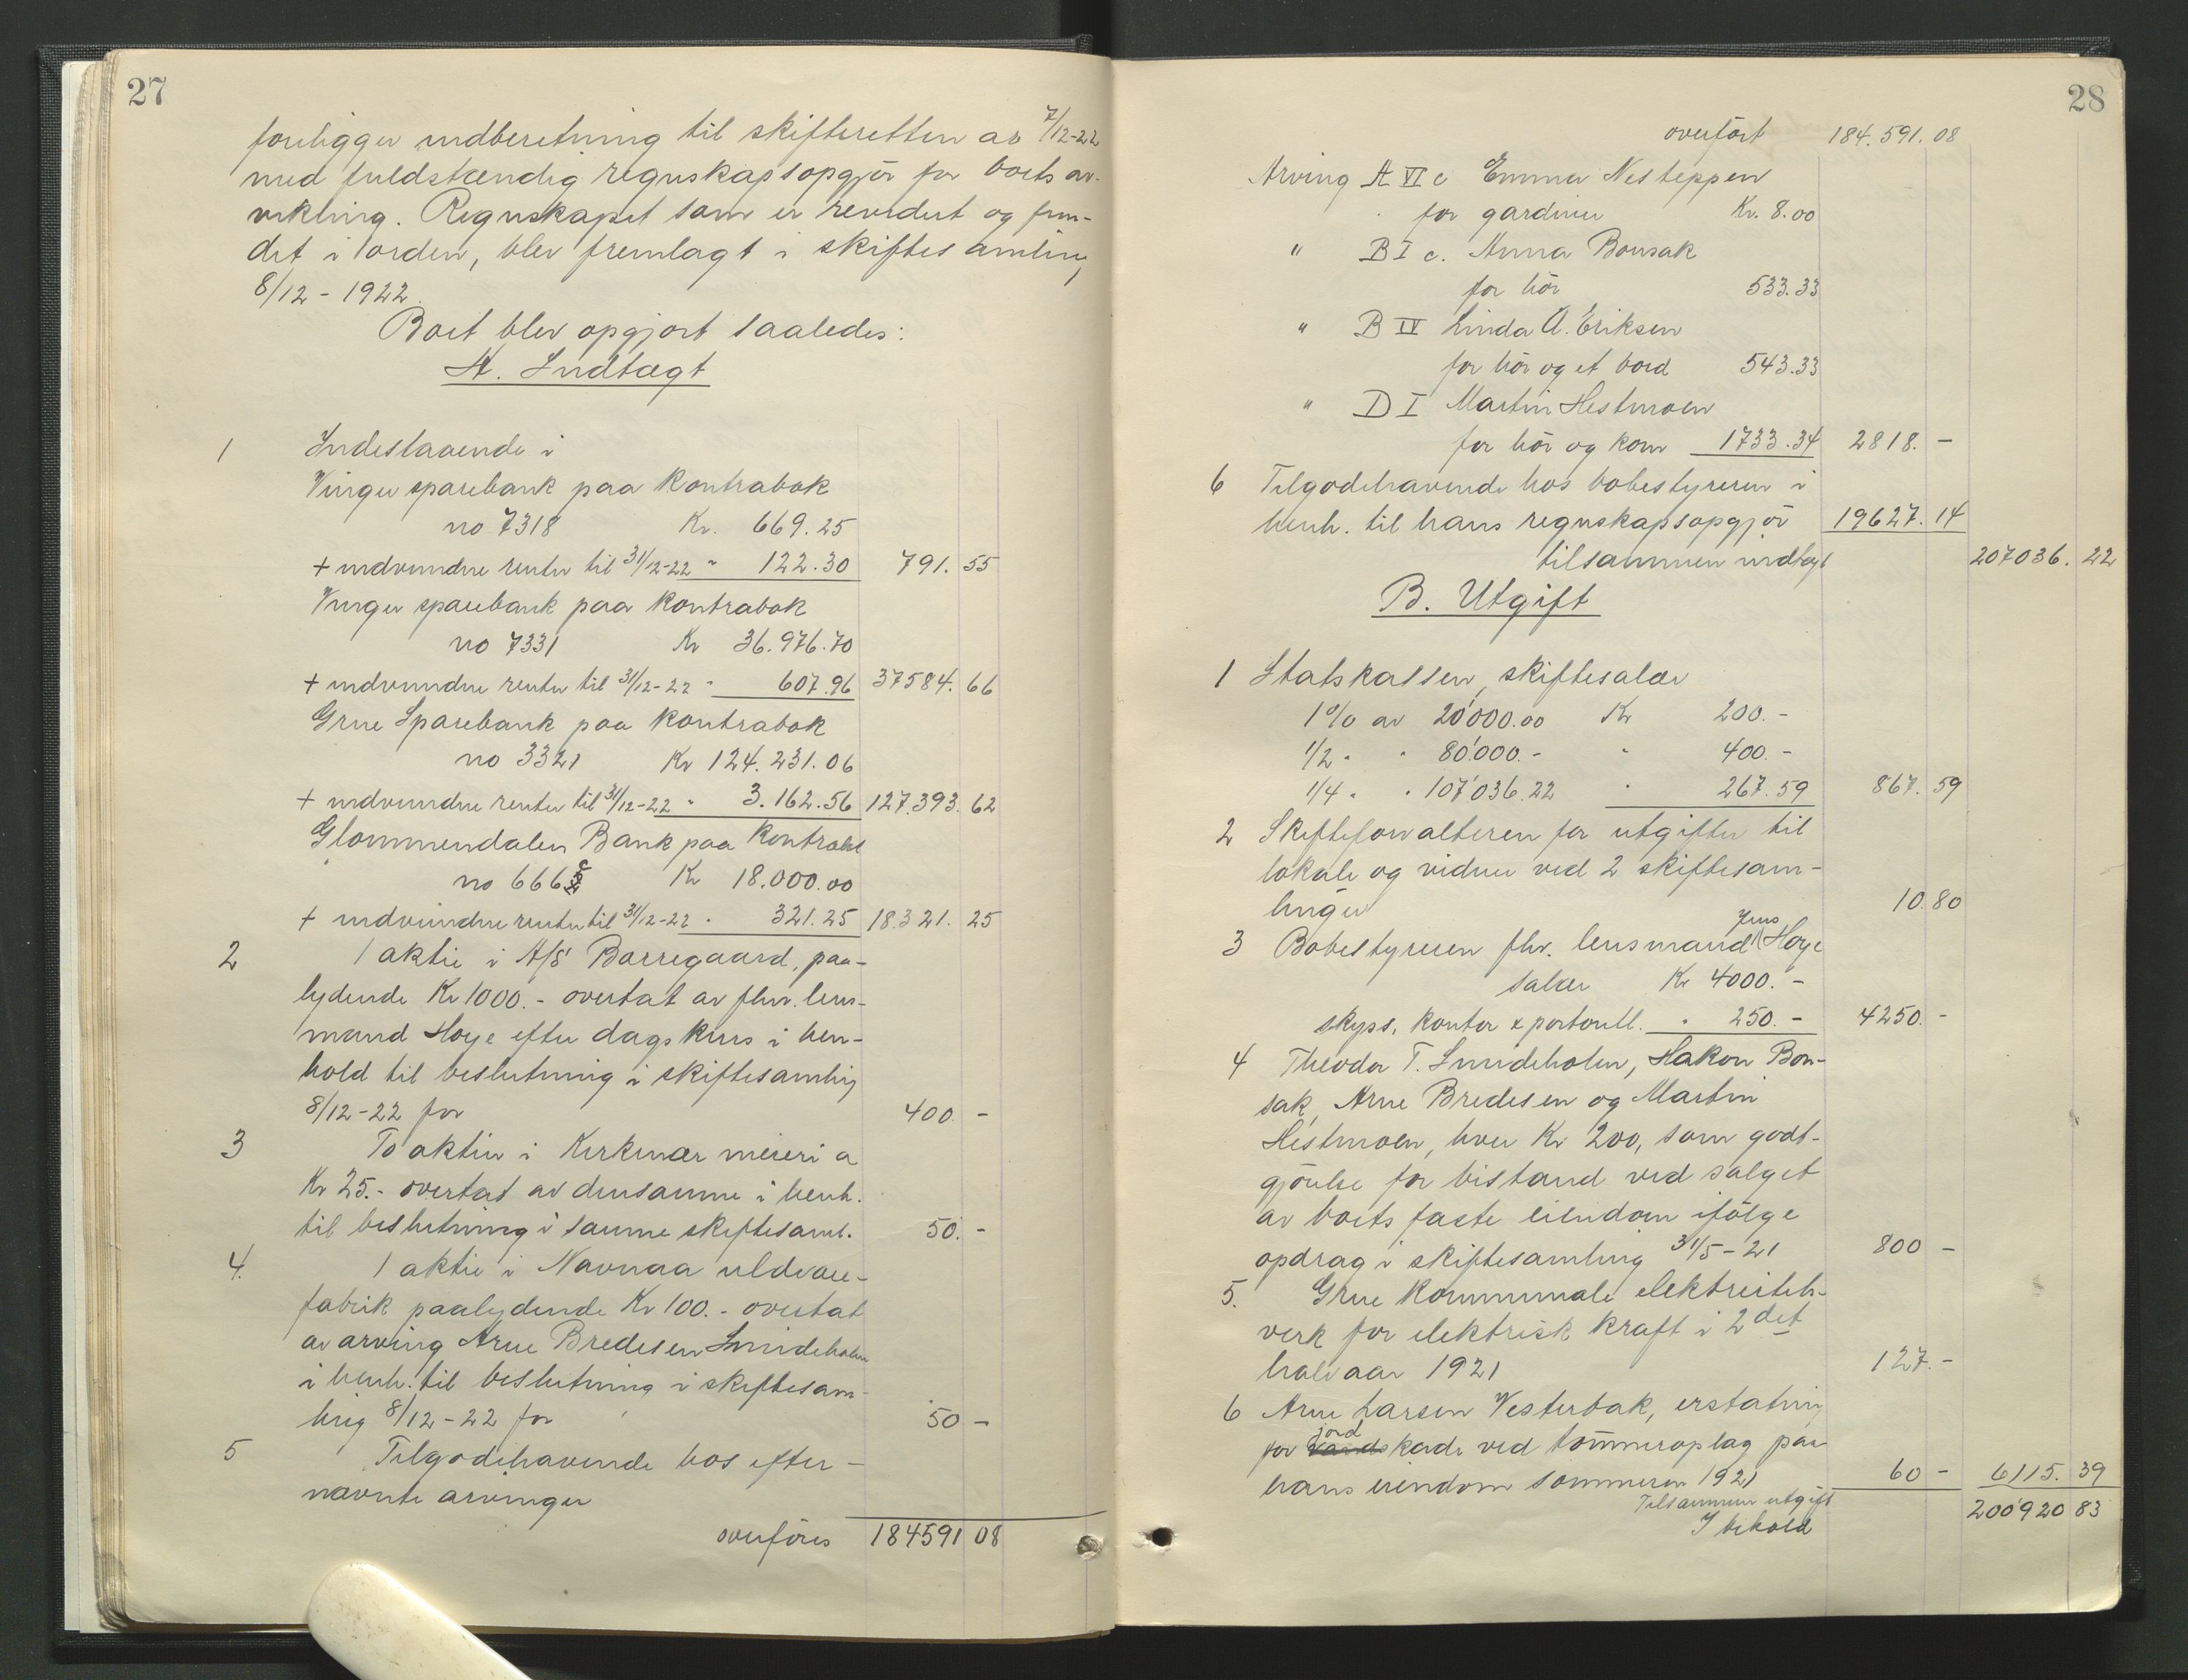 27
foreligger indberetning til skifteretten av 7/12-22
med fuldstændig regnskapsopgjör for boets av-
vikling. Regnskapet som er revidert og fun-
det i orden, blev fremlagt i skiftesamling
8/12 - 1922.
Boet blev opgjort saaledes:
A. Indtægt
1 Indestaaende i
Vinger sparebank paa kontrabok
no 7318 Kr. 669.25
+ indvundne renter til 31/12-22 " 122.30 791. 55
Vinger sparebank paa kontrabok
no 7331 Kr 36.976.70
+ indvundne renter til 31/12-22 " 607.96 37584. 66
Grue Sparebank paa kontrabok
no 3321 Kr 124.231.06
+ indvundne renter til 31/12-22 " 3.162.56 127.393. 62
Glommendalen Bank paa kontrabok
no 666 Kr 18.000.00
+ indvundne renter til 31/12-22 " 321.25 18.321. 25
2 1 aktie i A/S Borregaard, paa-
lydende Kr 1000.- overtat av fhv. lens-
mand Hoye efter dagskurs i hen-
hold til beslutning i skiftesamling
8/12-22 for 400. -
3 To aktier i Kirkenær meieri a
Kr 25.- overtat av densamme i henh.
til beslutning i samme skiftesaml. 50. -
4. 1 aktie i Navnaa uldvare-
fabrik paalydende Kr 100.- overtat
av arving Arne Bredesen Smideholen
i henh. til beslutning i skiftesam-
ling 8/12-22 for 50 -
5 Tilgodehavende hos efter-
nævnte arvinger
overföres 184591 08
28
overfört 184.591.08
Arving A VI c Emma Nesteppen
for gardiner Kr. 8.00
" B I c. Anna Bonsak
for hör 533.33
" B IV Linda A. Eriksen
for hör og et bord 543.33
" D I Martin Hestmoen
for hör og korn 1733.34 2818. -
6 Tilgodehavende hos bobestyreren i
henh. til hans regnskapsopgjör 19627.14
tilsammen indtægt 207036. 22
B. Utgift
1 Statskassen, skiftesalær
1% av 20'000.00 Kr 200.-
1/2 " " 80'000.- " 400.-
1/4 " " 107'036.22 " 267.59 867. 59
2 Skifteforvalteren for utgifter til
lokale og vidner ved 2 skiftesam-
linger 10.80
3 Bobestyreren fhv. lensmand Jens Hoye
salær Kr 4000.-
skyss, kontor & portoutl. " 250.- 4250.-
4 Theodor T. Smideholen, Hakon Bon-
sak, Arne Bredesen og Martin
Hestmoen, hver Kr 200, som godt-
gjörelse for bistand ved salget
av boets faste eiendom ifölge
opdrag i skiftesamling 31/5-21 800 -
5. Grue kommunale elektricitets-
verk for elektrisk kraft i 2det
halvaar 1921 127.-
6 Arne Larsen Vesterbak, erstatning
for jordskade ved tömmeroplag paa
hans eiendom sommeren 1921 60 - 6115. 39
Tilsammen utgift
I behold 200'920 83